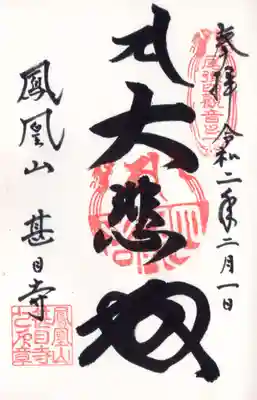 奉拝 令和二年二月一日
尾張四観音
大悲殿
鳳凰山 甚目寺
鳳凰山
甚目寺
之印章